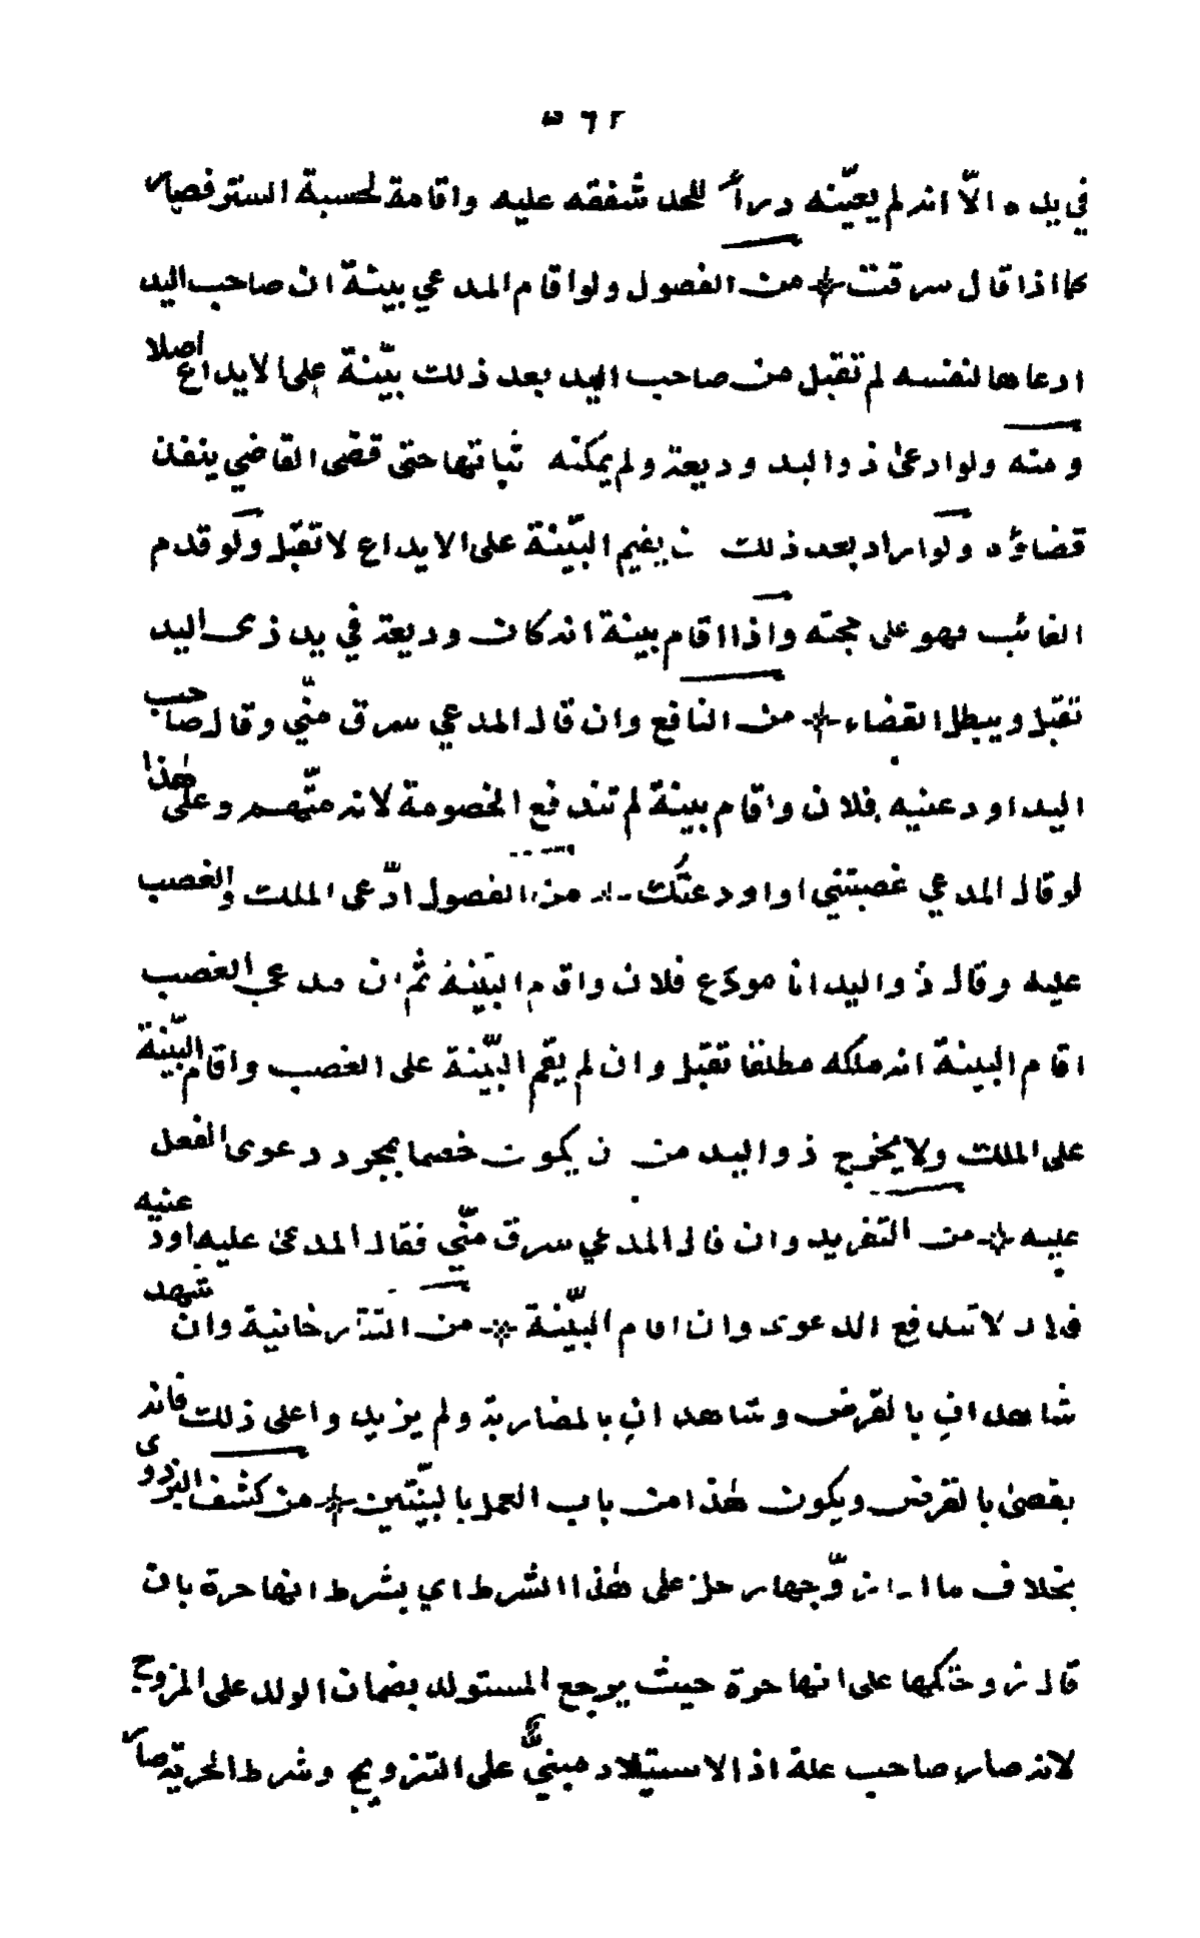 ٥٦٢
في يده الّا انه لم يعيّنه درأً للحد شفقه عليه واقامة لحسبة الستر فصار
كما اذا قال سرقت من الفصول ولو اقام المدعي بينة ان صاحب اليد
ادعاها لنفسه لم تقبل من صاحب اليد بعد ذلك بيّنة على الايداع اصلا
ومنه ولو ادعى ذو اليد وديعة ولم يمكنه ثباتها حتى قضى القاضي ينفذ
قضاؤه ولو اراد بعد ذلك ن يقيم البيّنة على الايداع لا تقبل ولو قدم
الغائب فهو على حجته واذا اقام بينة انه كان وديعة في يد ذى اليد
تقبل ويبطل القضاء من النافع وان قال المدعي سرق منّي وقال صاحب
اليد اودعنيه فلان واقام بينة لم تندفع الخصومة لانه متّهم وعلى هٰذا
لو قال المدعي غصبتني او اودعتُك من الفصول ادّعى الملك والغصب
عليه وقال ذو اليد انا مودَع فلان واقام البيّنة ثم ان مدعي الغصب
اقام البينة انه ملكه مطلقا تقبل وان لم يقم البيّنة على الغصب واقام البيّنة
على الملك ولا يخرج ذو اليد من ن يكون خصما بمجرد دعوى الفعل
عليه من التفريد وان قال المدعي سرق منّي فقال المدعى عليه اودعنيه
فلان لا تندفع الدعوى وان اقام البيّنة من التتارخانية وان شهد
شاهدان بالقرض وشاهدان بالمضاربة ولم يزيدوا على ذلك فانه
يقضى بالقرض ويكون هٰذا من باب العمل بالبيّنتين من كشف البزدوى
بخلاف ما اذا زوّجها رجل على هٰذا الشرط اي بشرط انها حرة بان
قال زوجتكها على انها حرة حيث يرجع المستولد بضمان الولد على المزوج
لانه صار صاحب علة اذ الاستيلاد مبنيٌّ على التزويج وشرط الحرية صار